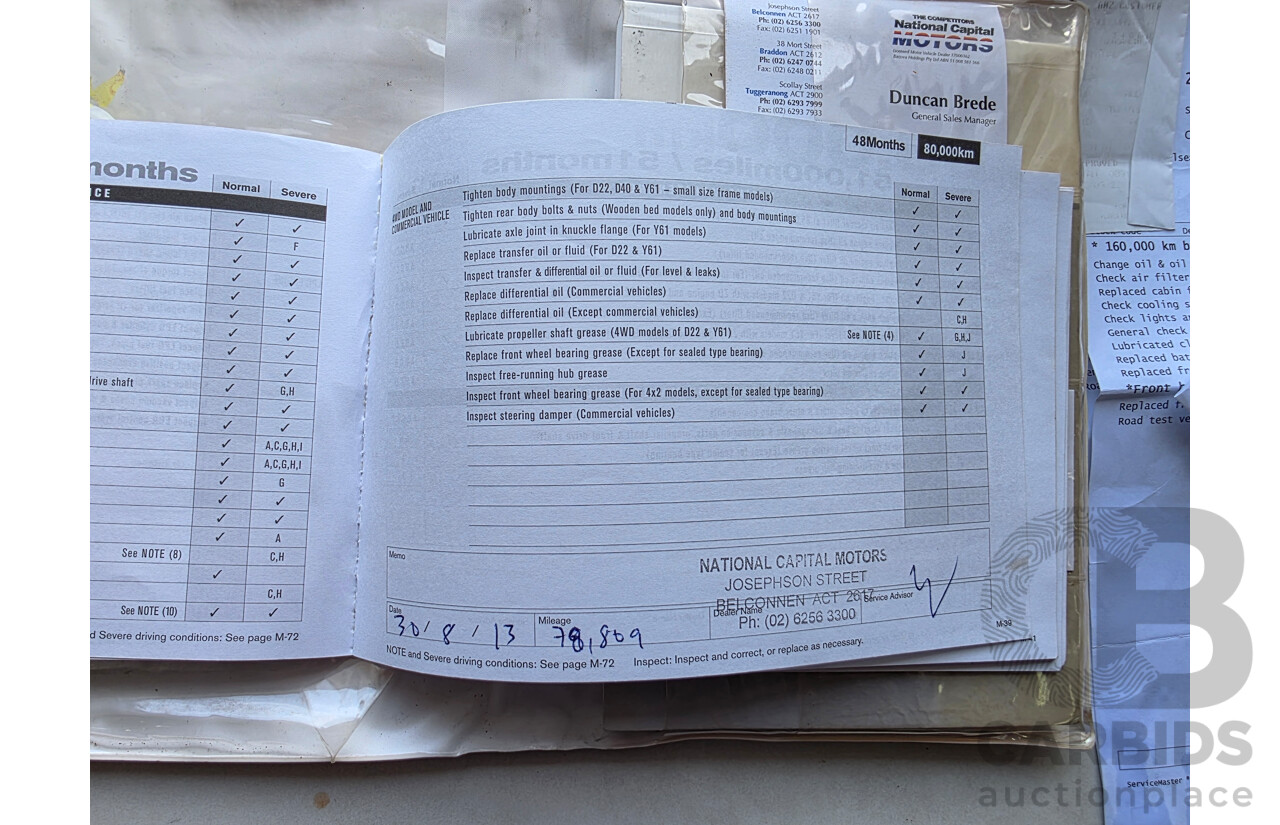 Josephson Street
Belconnen ACT 2617
Ph: (02) 6256 3300
Fax: (02) 6251 1901
38 Mort Street
Braddon ACT 2612
Ph: (02) 6247 0744
Fax: (02) 6248 0211
Scollay Street
Tuggeranong ACT 2900
Ph: (02) 6293 7999
Fax: (02) 6293 7933
THE COMPETITORS
National Capital
MOTORS
Duncan Brede
General Sales Manager
months
Normal Severe
CE
✓ ✓
✓ F
✓ ✓
✓ ✓
✓ ✓
✓ ✓
✓ ✓
✓ ✓
✓ ✓
drive shaft ✓ G,H
✓ ✓
✓ ✓
✓ A,C,G,H,I
✓ A,C,G,H,I
✓ G
✓ ✓
✓ ✓
✓ A
See NOTE (8) C,H
✓
C,H
See NOTE (10) ✓ ✓
d Severe driving conditions: See page M-72
48Months 80,000km
4WD MODEL AND
COMMERCIAL VEHICLE
Normal Severe
Tighten body mountings (For D22, D40 & Y61 – small size frame models) ✓ ✓
Tighten rear body bolts & nuts (Wooden bed models only) and body mountings ✓ ✓
Lubricate axle joint in knuckle flange (For Y61 models) ✓ ✓
Replace transfer oil or fluid (For D22 & Y61) ✓ ✓
Inspect transfer & differential oil or fluid (For level & leaks) ✓ ✓
Replace differential oil (Commercial vehicles) ✓ ✓
Replace differential oil (Except commercial vehicles) C,H
Lubricate propeller shaft grease (4WD models of D22 & Y61) See NOTE (4) ✓ G,H,J
Replace front wheel bearing grease (Except for sealed type bearing) ✓ J
Inspect free-running hub grease ✓ J
Inspect front wheel bearing grease (For 4x2 models, except for sealed type bearing) ✓ ✓
Inspect steering damper (Commercial vehicles) ✓ ✓
Memo
NATIONAL CAPITAL MOTORS
JOSEPHSON STREET
BELCONNEN ACT 2617
Ph: (02) 6256 3300
Date
30/8/13
Mileage
78,809
Dealer Name
Service Advisor
M-39
NOTE and Severe driving conditions: See page M-72 Inspect: Inspect and correct, or replace as necessary.
* 160,000 km b
Change oil & oil
Check air filter
Replaced cabin f
Check cooling s
Check lights a
General check
Lubricated cl
Replaced bat
Replaced fr
*Front
Replaced f
Road test ve
ServiceMaster
CARBIDS
auctionplace